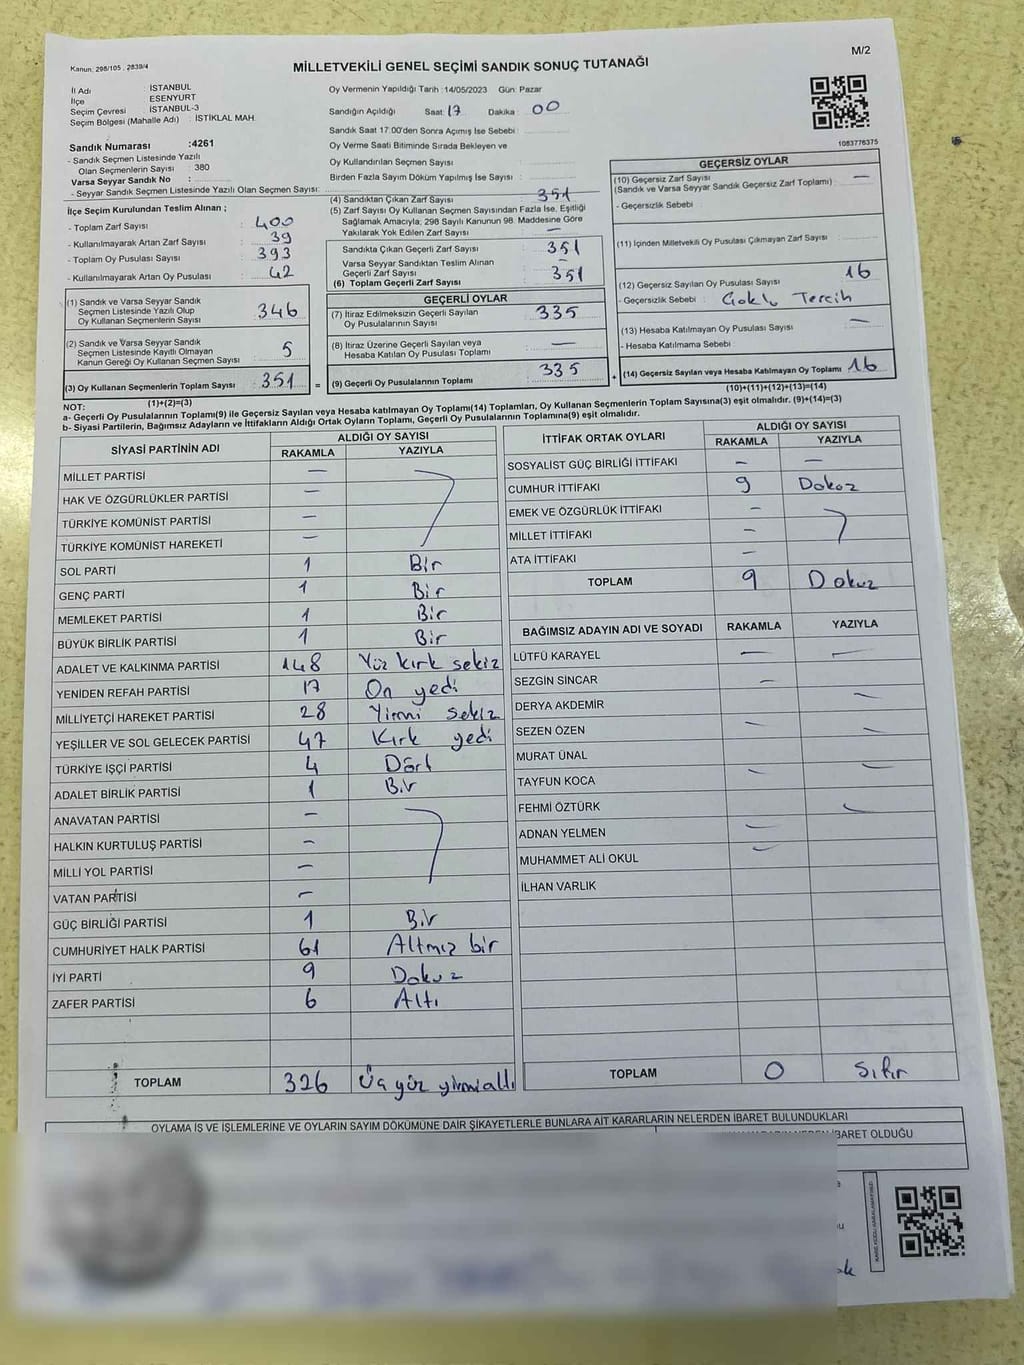 Kanun: 298/105 , 2839/4
M/2
MİLLETVEKİLİ GENEL SEÇİMİ SANDIK SONUÇ TUTANAĞI
İl Adı : İSTANBUL
İlçe ESENYURT
Seçim Çevresi İSTANBUL-3
Seçim Bölgesi (Mahalle Adı) : İSTİKLAL MAH.
Sandık Numarası :4261
- Sandık Seçmen Listesinde Yazılı
Olan Seçmenlerin Sayısı : 380
Varsa Seyyar Sandık No :
- Seyyar Sandık Seçmen Listesinde Yazılı Olan Seçmen Sayısı:
Oy Vermenin Yapıldığı Tarih : 14/05/2023 Gün: Pazar
Sandığın Açıldığı Saat: 17 Dakika : 00
Sandık Saat 17:00'den Sonra Açımış İse Sebebi :
Oy Verme Saati Bitiminde Sırada Bekleyen ve
Oy Kullandırılan Seçmen Sayısı :
Birden Fazla Sayım Döküm Yapılmış İse Sayısı :
1083776375
İlçe Seçim Kurulundan Teslim Alınan ;
- Toplam Zarf Sayısı : 400
- Kullanılmayarak Artan Zarf Sayısı : 39
- Toplam Oy Pusulası Sayısı : 393
- Kullanılmayarak Artan Oy Pusulası : 42
(1) Sandık ve Varsa Seyyar Sandık
Seçmen Listesinde Yazılı Olup
Oy Kullanan Seçmenlerin Sayısı : 346
(2) Sandık ve Varsa Seyyar Sandık
Seçmen Listesinde Kayıtlı Olmayan
Kanun Gereği Oy Kullanan Seçmen Sayısı 5
(3) Oy Kullanan Seçmenlerin Toplam Sayısı : 351 =
(1)+(2)=(3)
(4) Sandıktan Çıkan Zarf Sayısı : 351
(5) Zarf Sayısı Oy Kullanan Seçmen Sayısından Fazla İse, Eşitliği
Sağlamak Amacıyla; 298 Sayılı Kanunun 98. Maddesine Göre
Yakılarak Yok Edilen Zarf Sayısı : —
Sandıkta Çıkan Geçerli Zarf Sayısı : 351
Varsa Seyyar Sandıktan Teslim Alınan
Geçerli Zarf Sayısı : –
(6) Toplam Geçerli Zarf Sayısı : 351
GEÇERLİ OYLAR
(7) İtiraz Edilmeksizin Geçerli Sayılan
Oy Pusulalarının Sayısı : 335
(8) İtiraz Üzerine Geçerli Sayılan veya
Hesaba Katılan Oy Pusulası Toplamı : —
(9) Geçerli Oy Pusulalarının Toplamı : 335 +
GEÇERSİZ OYLAR
(10) Geçersiz Zarf Sayısı : —
(Sandık ve Varsa Seyyar Sandık Geçersiz Zarf Toplamı)
- Geçersizlik Sebebi :
(11) İçinden Milletvekili Oy Pusulası Çıkmayan Zarf Sayısı :
(12) Geçersiz Sayılan Oy Pusulası Sayısı : 16
- Geçersizlik Sebebi : Çoklu Tercih
(13) Hesaba Katılmayan Oy Pusulası Sayısı : —
- Hesaba Katılmama Sebebi :
(14) Geçersiz Sayılan veya Hesaba Katılmayan Oy Toplamı : 16
(10)+(11)+(12)+(13)=(14)
NOT:
a- Geçerli Oy Pusulalarının Toplamı(9) ile Geçersiz Sayılan veya Hesaba katılmayan Oy Toplamı(14) Toplamları, Oy Kullanan Seçmenlerin Toplam Sayısına(3) eşit olmalıdır. (9)+(14)=(3)
b- Siyasi Partilerin, Bağımsız Adayların ve İttifakların Aldığı Ortak Oyların Toplamı, Geçerli Oy Pusulalarının Toplamına(9) eşit olmalıdır.
SİYASİ PARTİNİN ADI ALDIĞI OY SAYISI
RAKAMLA YAZIYLA
MİLLET PARTİSİ —
HAK VE ÖZGÜRLÜKLER PARTİSİ —
TÜRKİYE KOMÜNİST PARTİSİ —
TÜRKİYE KOMÜNİST HAREKETİ —
SOL PARTİ 1 Bir
GENÇ PARTİ 1 Bir
MEMLEKET PARTİSİ 1 Bir
BÜYÜK BİRLİK PARTİSİ 1 Bir
ADALET VE KALKINMA PARTİSİ 148 Yüz kırk sekiz
YENİDEN REFAH PARTİSİ 17 On yedi
MİLLİYETÇİ HAREKET PARTİSİ 28 Yirmi sekiz
YEŞİLLER VE SOL GELECEK PARTİSİ 47 Kırk yedi
TÜRKİYE İŞÇİ PARTİSİ 4 Dört
ADALET BİRLİK PARTİSİ 1 Bir
ANAVATAN PARTİSİ —
HALKIN KURTULUŞ PARTİSİ —
MİLLİ YOL PARTİSİ —
VATAN PARTİSİ —
GÜÇ BİRLİĞİ PARTİSİ 1 Bir
CUMHURİYET HALK PARTİSİ 61 Altmız bir
İYİ PARTİ 9 Dokuz
ZAFER PARTİSİ 6 Altı
TOPLAM 326 Üç yüz yirmi altı
İTTİFAK ORTAK OYLARI ALDIĞI OY SAYISI
RAKAMLA YAZIYLA
SOSYALIST GÜÇ BİRLİĞİ İTTİFAKI — —
CUMHUR İTTİFAKI 9 Dokuz
EMEK VE ÖZGÜRLÜK İTTİFAKI —
MİLLET İTTİFAKI —
ATA İTTİFAKI —
TOPLAM 9 Dokuz
BAĞIMSIZ ADAYIN ADI VE SOYADI RAKAMLA YAZIYLA
LÜTFÜ KARAYEL — —
SEZGİN SİNCAR —
DERYA AKDEMİR —
SEZEN ÖZEN — —
MURAT ÜNAL —
TAYFUN KOCA —
FEHMİ ÖZTÜRK —
ADNAN YELMEN —
MUHAMMET ALİ OKUL —
İLHAN VARLIK
TOPLAM 0 Sıfır
OYLAMA İŞ VE İŞLEMLERİNE VE OYLARIN SAYIM DÖKÜMÜNE DAİR ŞİKAYETLERLE BUNLARA AİT KARARLARIN NELERDEN İBARET BULUNDUKLARI
İBARET OLDUĞU